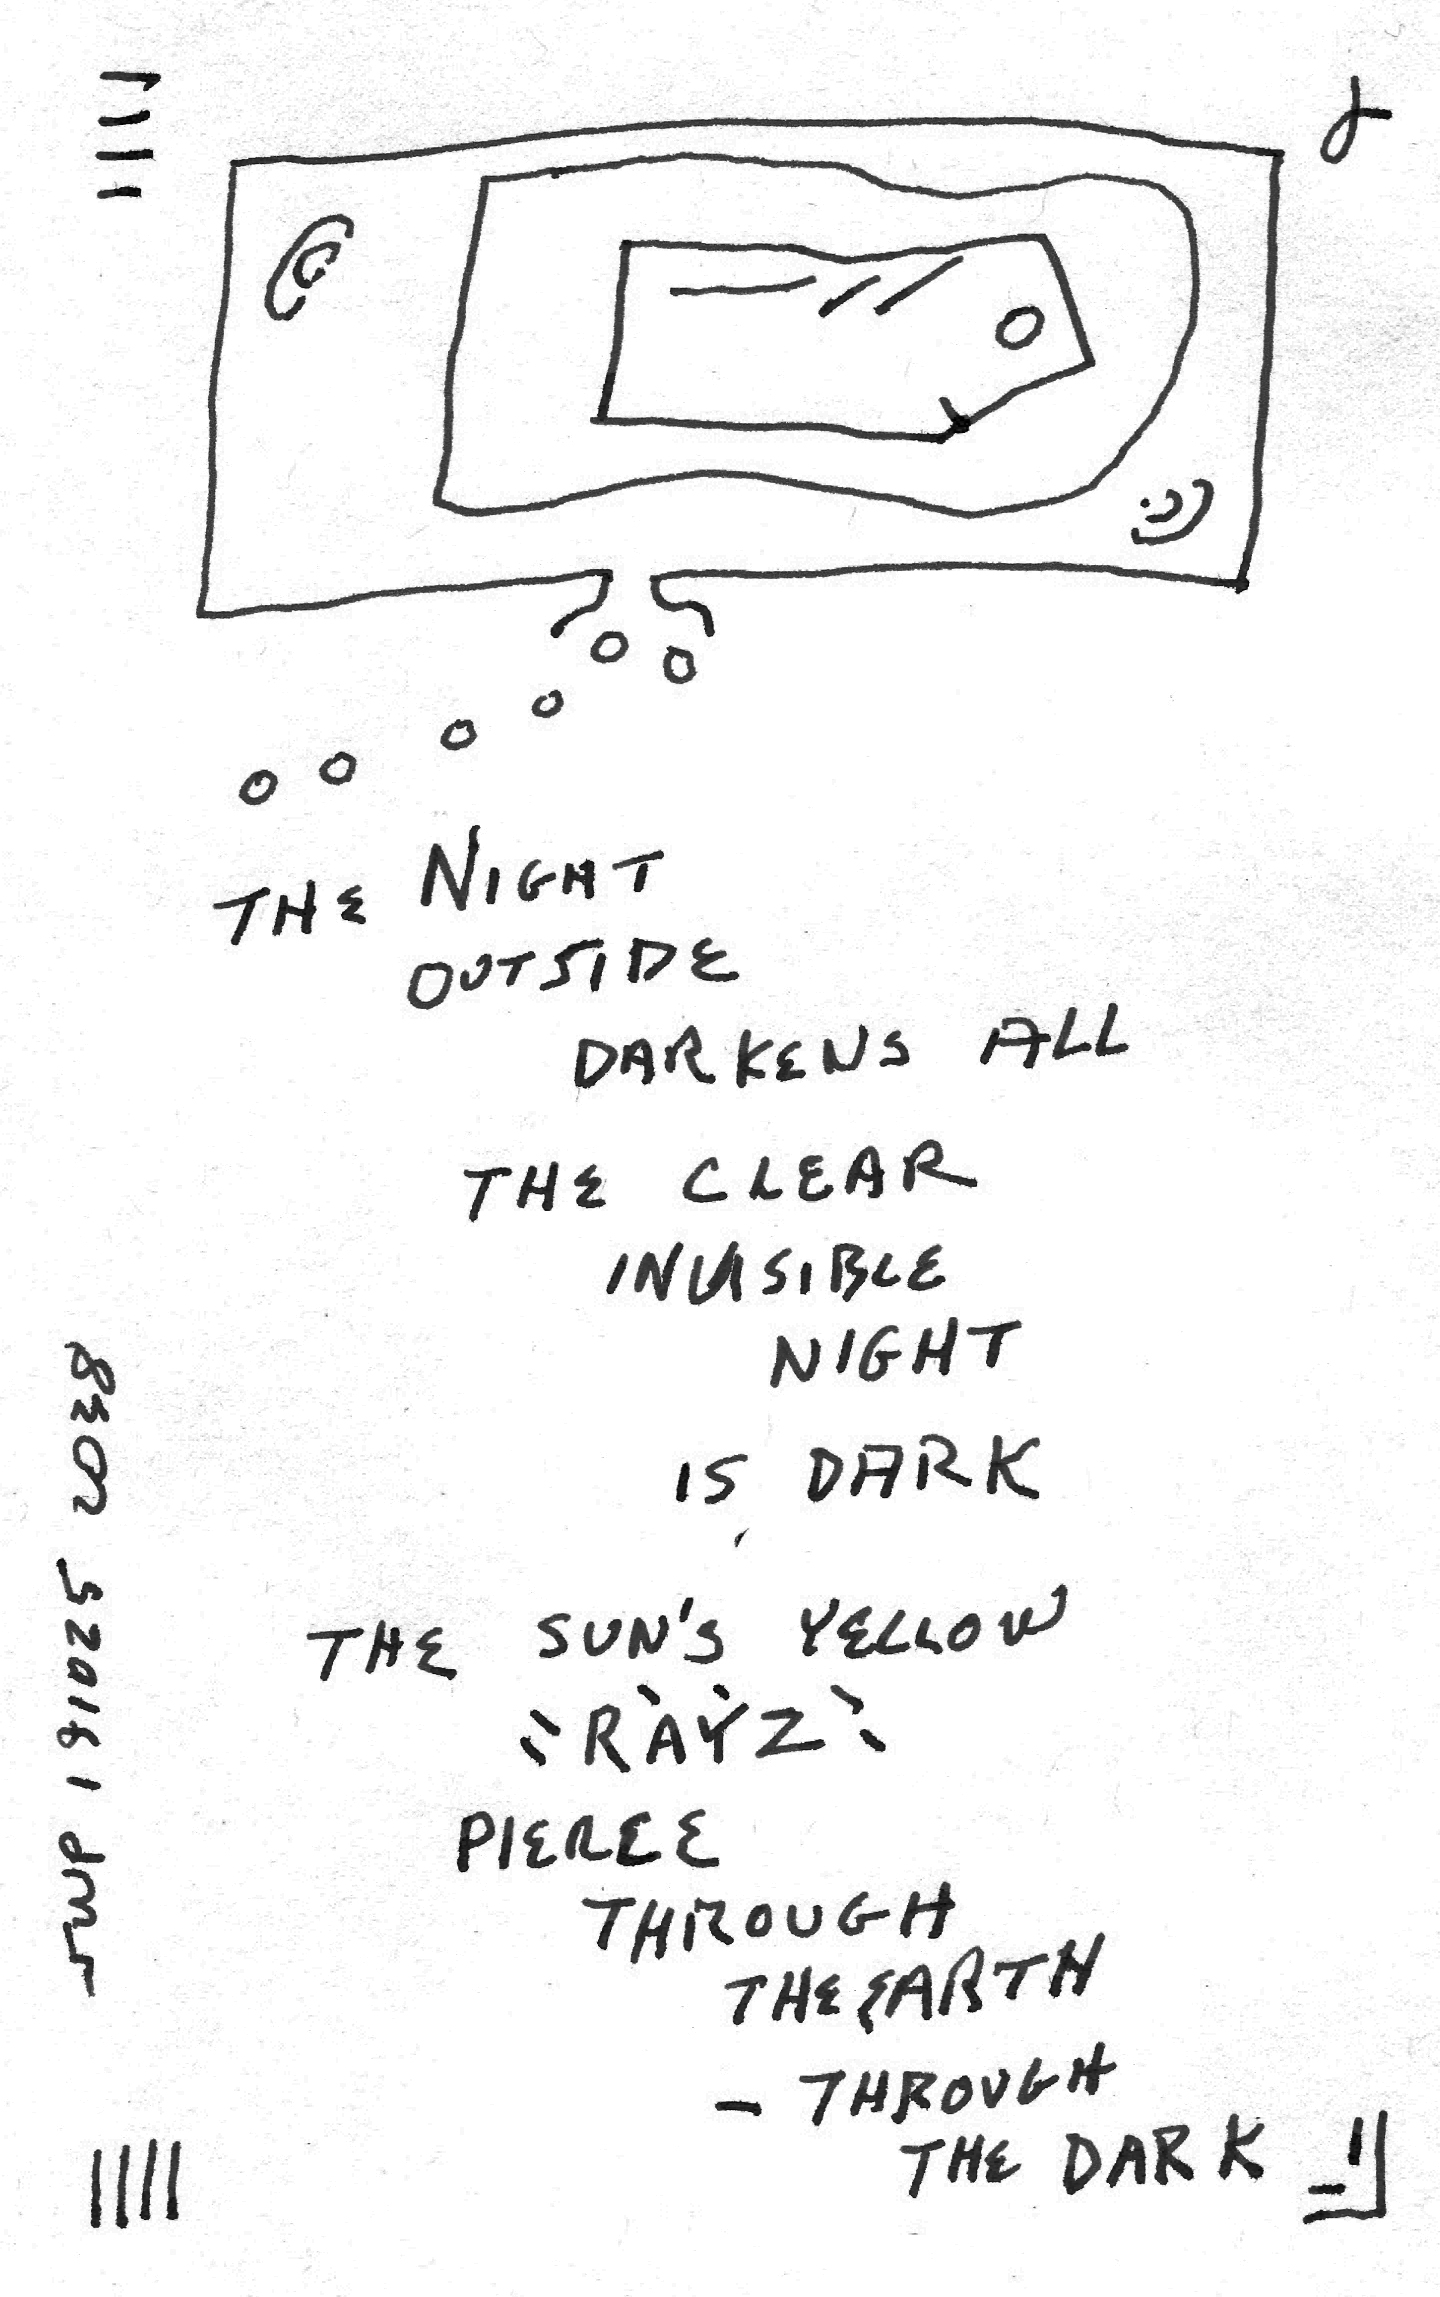 THE NIGHT
OUTSIDE
DARKENS ALL
THE CLEAR
INVISIBLE
NIGHT
IS DARK
THE SUN'S YELLOW
RAYZ
PIERCE
THROUGH
THE EARTH
- THROUGH
THE DARK